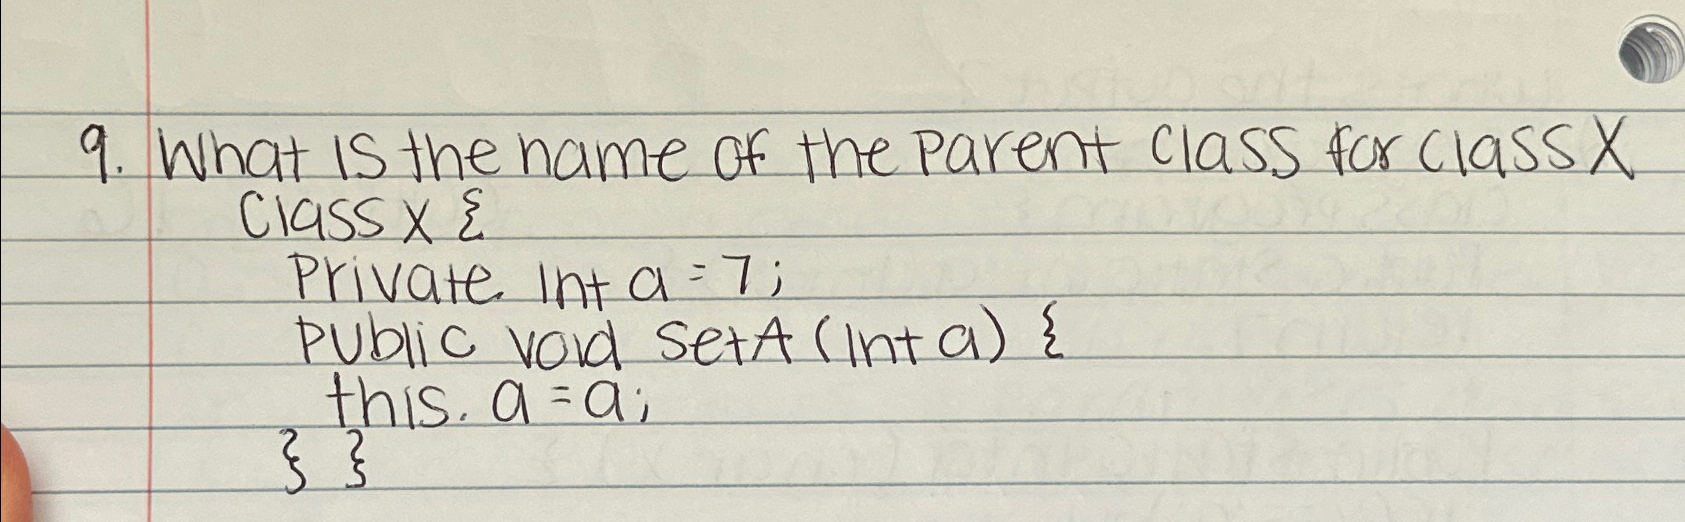 9. What is the name of the parent class for class X
Class X {
Private int a = 7;
Public void setA (int a) {
this. a = a;
} }